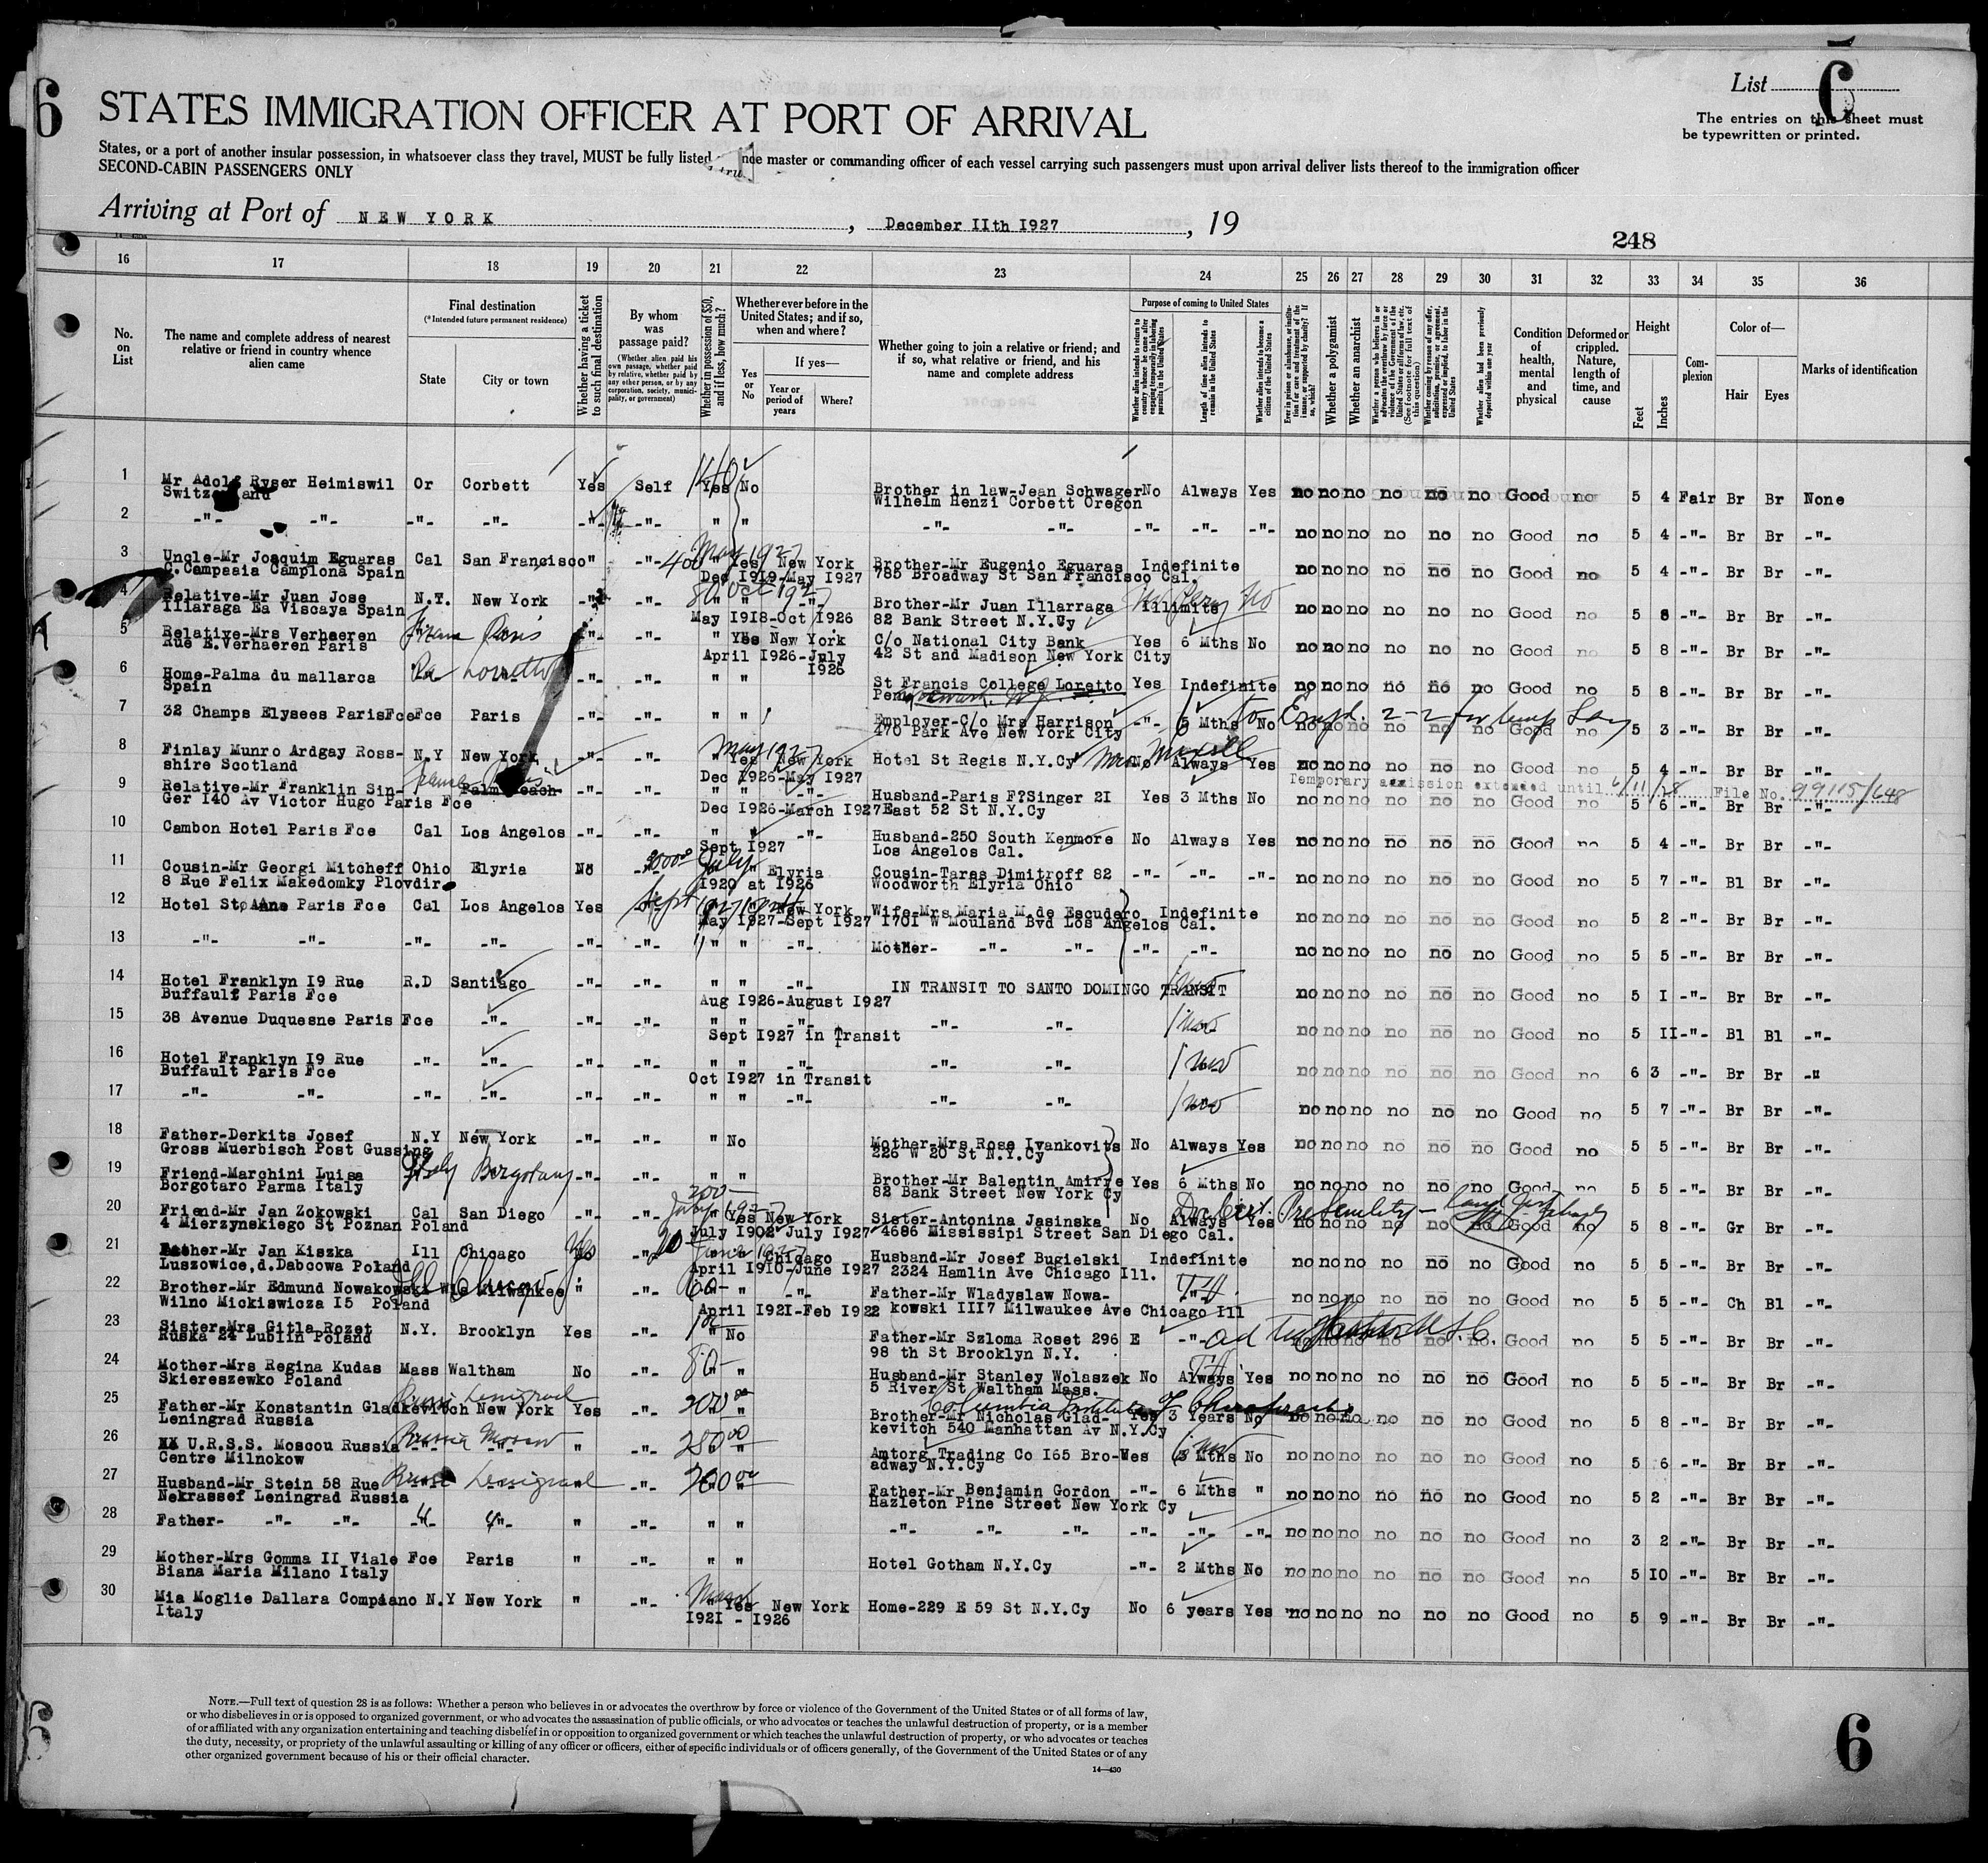 6
List
6
The entries on this sheet must
be typewritten or printed.
STATES IMMIGRATION OFFICER AT PORT OF ARRIVAL
States, or a port of another insular possession, in whatsoever class they travel, MUST be fully listed master or commanding officer of each vessel carrying such passengers must upon arrival deliver lists thereof to the immigration officer
SECOND-CABIN PASSENGERS ONLY
Arriving at Port of NEW YORK , December IIth I927 , 19
248
16 17 18 19 20 21 22 23 24 25 26 27 28 29 30 31 32 33 34 35 36
No. on List
The name and complete address of nearest relative or friend in country whence alien came
Final destination
(*Intended future permanent residence)
State
City or town
Whether having a ticket to such final destination
By whom was passage paid?
(Whether alien paid his own passage, whether paid by relative, whether paid by any other person, or by any corporation, society, municipality, or government)
Whether in possession of $50, and if less, how much?
Whether ever before in the United States; and if so, when and where?
Yes or No
If yes—
Year or period of years
Where?
Whether going to join a relative or friend; and if so, what relative or friend, and his name and complete address
Purpose of coming to United States
Whether alien intends to return to country whence he came after engaging temporarily in laboring pursuits in the United States
Length of time alien intends to remain in the United States
Whether alien intends to become a citizen of the United States
Ever in prison or almshouse, or institution for care and treatment of the insane, or supported by charity? If so, which?
Whether a polygamist
Whether an anarchist
Whether a person who believes in or advocates the overthrow by force or violence of the Government of the United States or all forms of law, etc. (See footnote for full text of this question)
Whether coming by reason of any offer, solicitation, promise, or agreement, expressed or implied, to labor in the United States
Whether alien had been previously deported within one year
Condition of health, mental and physical
Deformed or crippled. Nature, length of time, and cause
Height
Feet
Inches
Complexion
Color of—
Hair
Eyes
Marks of identification
1 Mr Adolf Ryser Heimiswil Or Corbett Yes Self 140 Yes No Brother in law-Jean Schwager No Always Yes no no no no no no Good no 5 4 Fair Br Br None
Switzerland Wilhelm Henzi Corbett Oregon
2 -"- -"- -"- -"- -"- -"- " " -"- -"- -"- -"- -"- no no no no no no Good no 5 4 -"- Br Br -"-
3 Uncle-Mr Joaquim Eguaras Cal San Francisco " -"- 400 " Yes May 1927 New York Brother-Mr Eugenio Eguaras Indefinite no no no no no no Good no 5 4 -"- Br Br -"-
C.Campasia Camplona Spain Dec I9I9-May I927 785 Broadway St San Francisco Cal.
4 Relative-Mr Juan Jose N.Y. New York -"- -"- 80 " " Oct 1927 -"- Brother-Mr Juan Illarraga Illimite no no no no no no Good no 5 8 -"- Br Br -"-
Illaraga Ea Viscaya Spain May I9I8-Oct I926 82 Bank Street N.Y.Cy
5 Relative-Mrs Verhaeren France Paris -"- -"- " Yes New York C/o National City Bank Yes 6 Mths No no no no no no no Good no 5 8 -"- Br Br -"-
Rue E.Verhaeren Paris April I926-July I926 42 St and Madison New York City
6 Home-Palma du mallarca Pa Lorretto -"- -"- " " St Francis College Loretto Yes Indefinite no no no no no no Good no 5 8 -"- Br Br -"-
Spain Penn
7 32 Champs Elysees ParisFce Fce Paris -"- -"- " " Employer-C/o Mrs Harrison -"- 6 Mths No no no no no no no Good no 5 3 -"- Br Br -"-
470 Park Ave New York City
8 Finlay Munro Ardgay Ross- N.Y New York -"- -"- " Yes May 1927 New York Hotel St Regis N.Y.Cy No Always Yes no no no no no no Good no 5 4 -"- Br Br -"-
shire Scotland Dec I926-May I927
Temporary admission extended until 6/11/28 File No. 99115/648
9 Relative-Mr Franklin Sin- France Paris Palm Beach -"- -"- " " -"- Husband-Paris F?Singer 2I Yes 3 Mths No no no no no no no Good no 5 6 -"- Br Br -"-
Ger I40 Av Victor Hugo Paris Fce Dec I926-March I927 East 52 St N.Y.Cy
10 Cambon Hotel Paris Fce Cal Los Angelos -"- -"- " " -"- Husband-250 South Kenmore No Always Yes no no no no no no Good no 5 4 -"- Br Br -"-
Sept I927 Los Angelos Cal.
11 Cousin-Mr Georgi Mitcheff Ohio Elyria No -"- July " Elyria Cousin-Taras Dimitroff 82 -"- -"- -"- no no no no no no Good no 5 7 -"- Bl Br -"-
8 Rue Felix Makedomky Plovdir I920 at I926 Woodworth Elyria Ohio
12 Hotel St Anne Paris Fce Cal Los Angelos Yes Sept 1927 " New York Wife-Mrs Maria M.de Escudero Indefinite no no no no no no Good no 5 2 -"- Br Br -"-
May I927-Sept I927 I70I W Mouland Bvd Los Angelos Cal.
13 -"- -"- -"- -"- -"- -"- " " -"- Mother- -"- -"- -"- -"- no no no no no no Good no 5 5 -"- Br Br -"-
14 Hotel Franklyn I9 Rue R.D Santiago -"- -"- " " -"- IN TRANSIT TO SANTO DOMINGO TRANSIT no no no no no no Good no 5 I -"- Br Br -"-
Buffault Paris Fce Aug I926-August I927
15 38 Avenue Duquesne Paris Fce -"- -"- -"- " " -"- -"- -"- no no no no no no Good no 5 II -"- Bl Bl -"-
Sept I927 in Transit
16 Hotel Franklyn I9 Rue -"- -"- -"- -"- " " -"- -"- -"- no no no no no no Good no 6 3 -"- Br Br -"
Buffault Paris Fce Oct I927 in Transit
17 -"- -"- -"- -"- -"- -"- " " -"- -"- -"- no no no no no no Good no 5 7 -"- Br Br -"-
18 Father-Derkits Josef N.Y New York -"- -"- " No Mother-Mrs Rose Ivankovits No Always Yes no no no no no no Good no 5 5 -"- Br Br -"-
Gross Muerbisch Post Gussing 226 W 20 St N.Y.Cy
19 Friend-Marchini Luisa Italy -"- -"- " " Brother-Mr Balentin Amirre Yes 6 Mths No no no no no no no Good no 5 5 -"- Br Br -"-
Borgotaro Parma Italy 200 82 Bank Street New York Cy
20 Friend-Mr Jan Zokowski Cal San Diego -"- -"- " Yes July 1927 New York Sister-Antonina Jasinska No Always Yes no no no no no no Good no 5 8 -"- Gr Br -"-
4 Mierzynskiego St Poznan Poland July I902-July I927 4686 Mississipi Street San Diego Cal.
21 Father-Mr Jan Kiszka Ill Chicago Yes -"- June 1927 Chicago Husband-Mr Josef Bugielski Indefinite no no no no no no Good no 5 5 -"- Br Br -"-
Luszowice,d.Dabcowa Poland April I9I0-June I927 2324 Hamlin Ave Chicago Ill.
22 Brother-Mr Edmund Nowakowski Wis Milwaukee Ill Chicago " -"- 60- " -"- Father-Mr Wladyslaw Nowa- no no no no no no Good no 5 5 -"- Ch Bl -"-
Wilno Mickiswicza I5 Poland April I92I-Feb I922 kowski III7 Milwaukee Ave Chicago Ill
23 Sister-Mrs Gitla Rozet N.Y. Brooklyn Yes -"- " No Father-Mr Szloma Roset 296 E -"- no no no no no no. Good no 5 5 -"- Br Br -"-
Ruska 24 Lublin Poland 98 th St Brooklyn N.Y.
24 Mother-Mrs Regina Kudas Mass Waltham No -"- 80- " Husband-Mr Stanley Wolaszek No Always Yes no no no no no no Good no 5 5 -"- Br Br -"-
Skiereszewko Poland 5 River St Waltham Mass.
Russia Leningrad Columbia Institute of Chiropractic
25 Father-Mr Konstantin Gladkevitch New York Yes -"- 200 " Brother-Mr Nicholas Glad- Yes 3 Years No no no no no no no Good no 5 8 -"- Br Br -"-
Leningrad Russia kevitch 540 Manhattan Av N.Y.Cy
26 U.R.S.S. Moscou Russia Russia Moscow " -"- 250 " Amtorg Trading Co I65 Bro- Yes 6 Mths No no no no no no no Good no 5 6 -"- Br Br -"-
Centre Milnokow adway N.Y.Cy
27 Husband-Mr Stein 58 Rue Russia Leningrad " -"- 200 " Father-Mr Benjamin Gordon -"- 6 Mths " no no no no no no Good no 5 2 -"- Br Br -"-
Nekrassef Leningrad Russia Hazleton Pine Street New York Cy
28 Father- -"- -"- -"- -"- " -"- " " -"- -"- -"- -"- -"- -"- no no no no no no Good no 3 2 -"- Br Br -"-
29 Mother-Mrs Gomma II Viale Fce Paris " -"- " " Hotel Gotham N.Y.Cy -"- 2 Mths No no no no no no no Good no 5 I0 -"- Br Br -"-
Biana Maria Milano Italy
30 Mia Moglie Dallara Compiano N.Y New York " -"- March Yes New York Home-229 E 59 St N.Y.Cy No 6 years Yes no no no no no no Good no 5 9 -"- Br Br -"-
Italy I92I - I926
NOTE.—Full text of question 28 is as follows: Whether a person who believes in or advocates the overthrow by force or violence of the Government of the United States or of all forms of law,
or who disbelieves in or is opposed to organized government, or who advocates the assassination of public officials, or who advocates or teaches the unlawful destruction of property, or is a member
of or affiliated with any organization entertaining and teaching disbelief in or opposition to organized government or which teaches the unlawful destruction of property, or who advocates or teaches
the duty, necessity, or propriety of the unlawful assaulting or killing of any officer or officers, either of specific individuals or of officers generally, of the Government of the United States or of any
other organized government because of his or their official character.
14—430
6